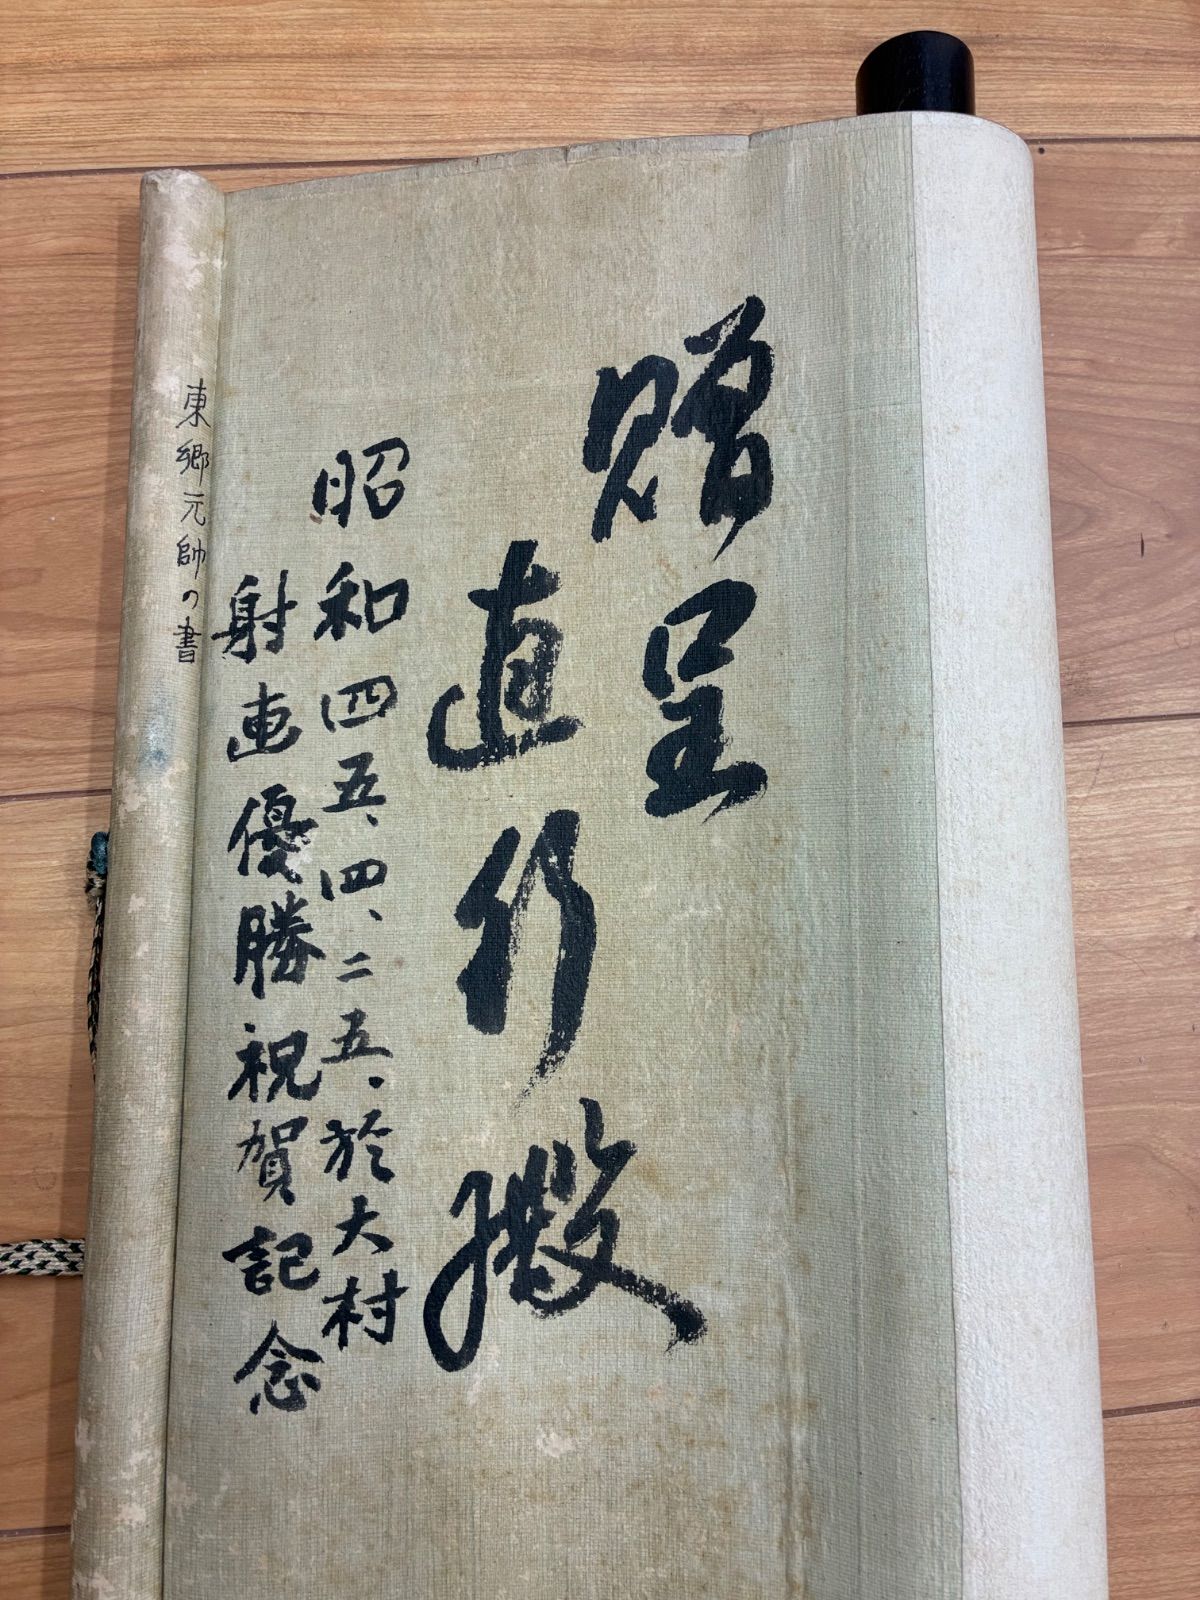 贈呈
直行殿
昭和四五、四、二五、於大村
射連優勝祝賀記念
東郷元帥の書